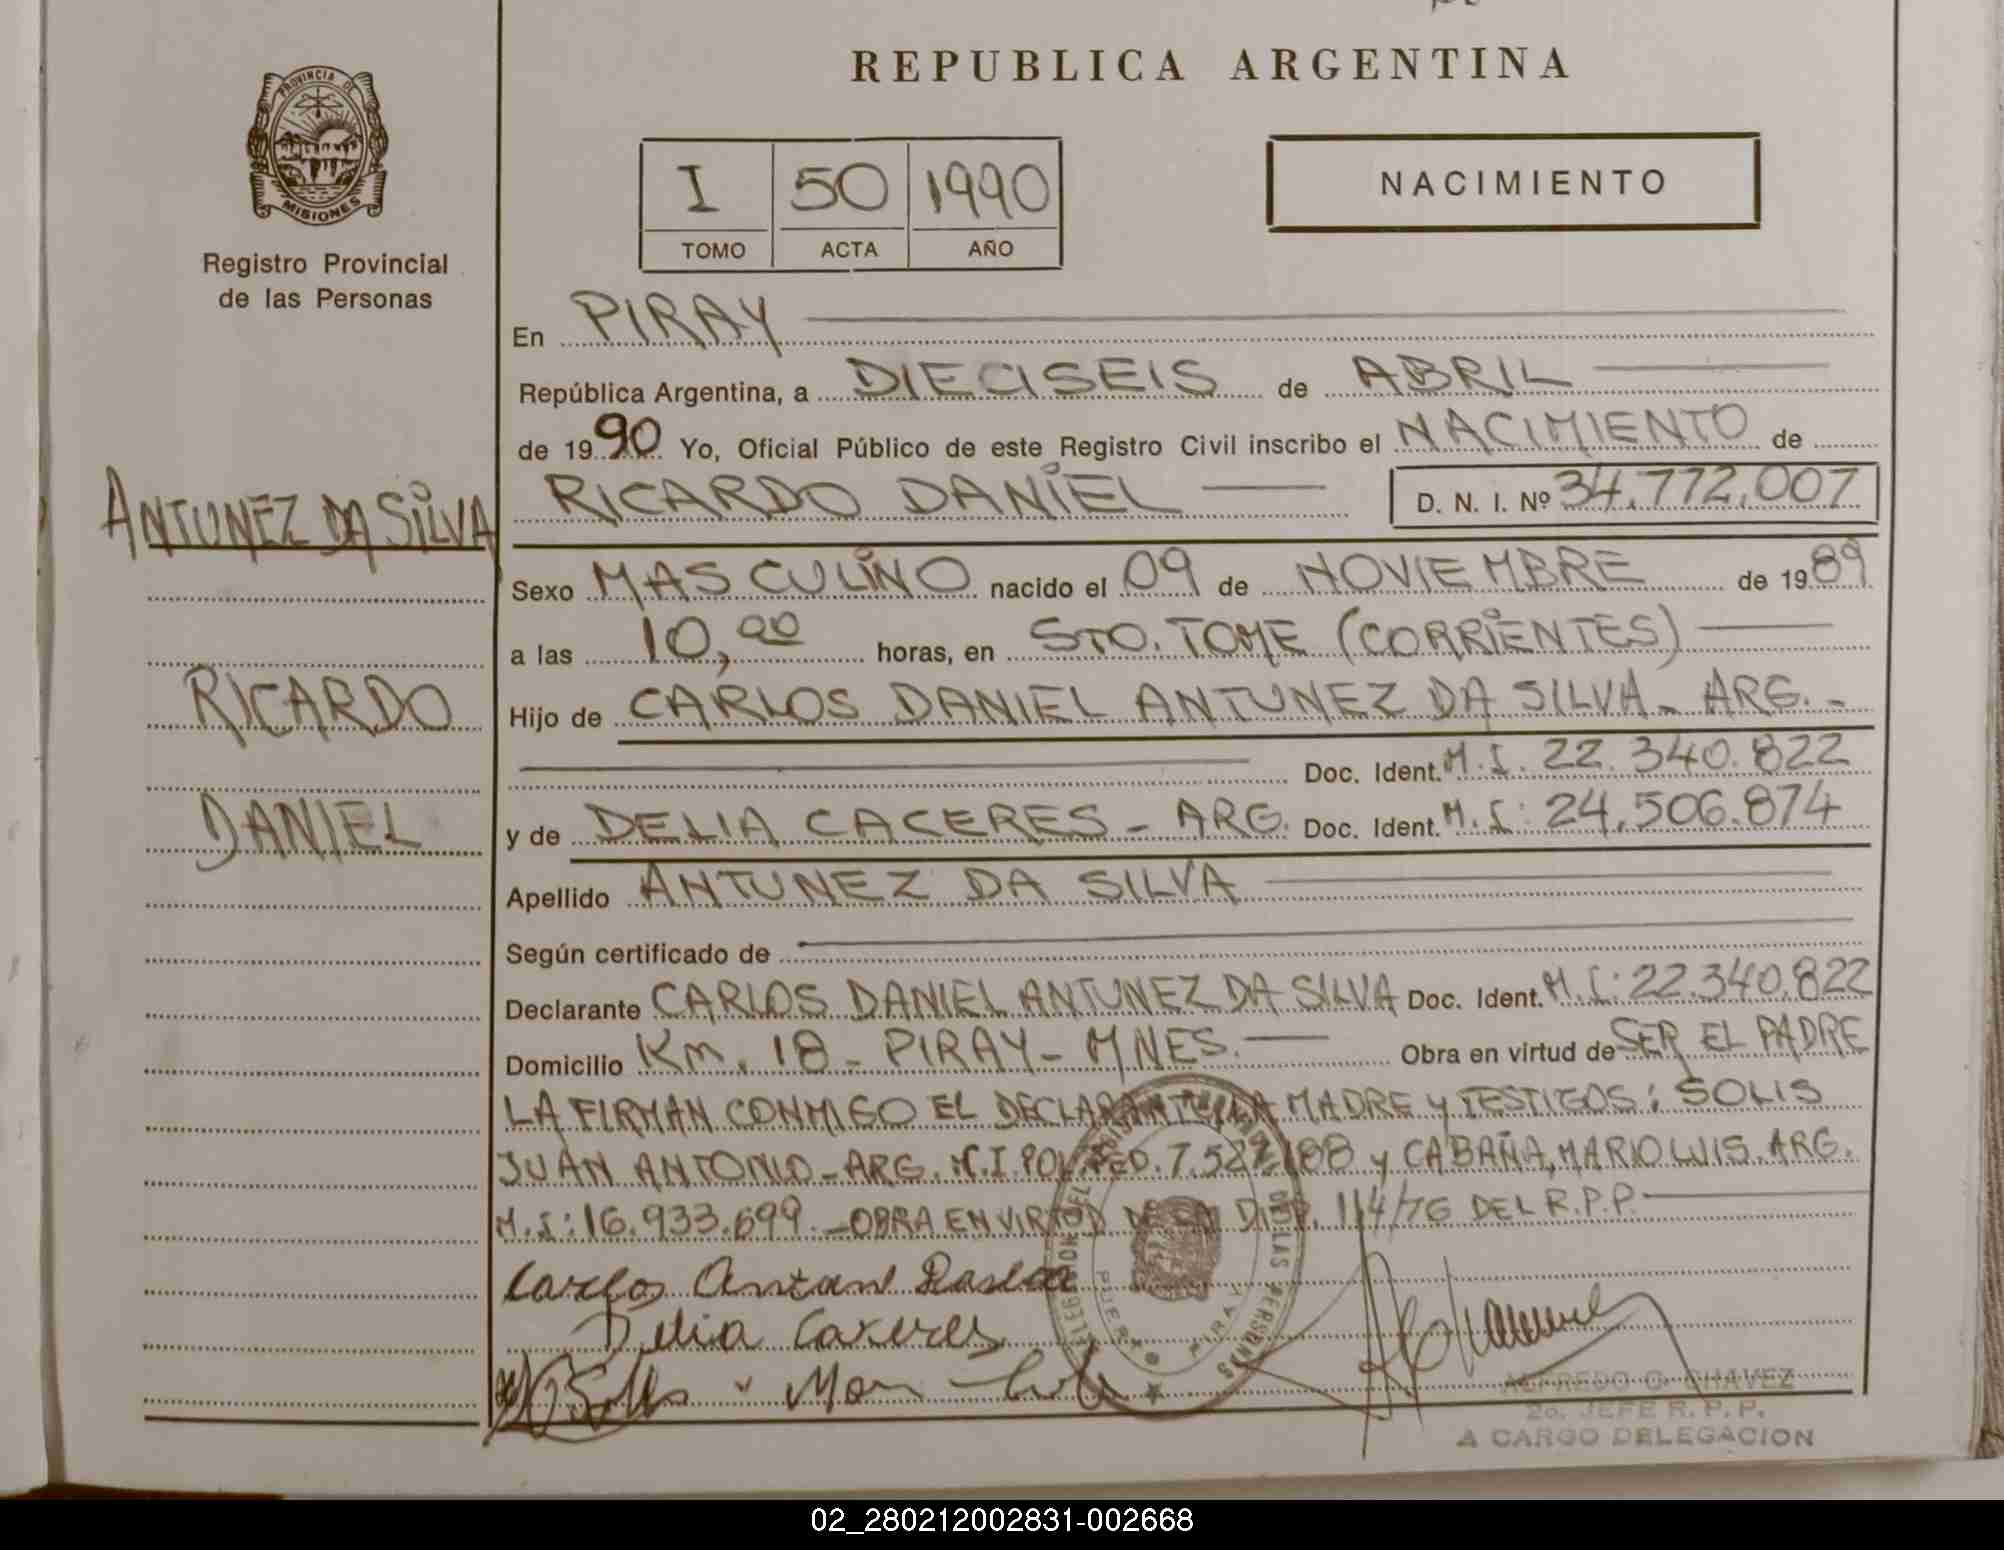 REPUBLICA ARGENTINA
PROVINCIA DE
MISIONES
Registro Provincial
de las Personas
I 50 1990
TOMO ACTA AÑO
NACIMIENTO
En PIRAY
República Argentina, a DIECISEIS de ABRIL
de 1990 Yo, Oficial Público de este Registro Civil inscribo el NACIMIENTO de
ANTUNEZ DA SILVA
RICARDO DANIEL D. N. I. Nº 34.772.007
Sexo MASCULINO nacido el 09 de NOVIEMBRE de 1989
a las 10,00 horas, en STO. TOME (CORRIENTES)
RICARDO
Hijo de CARLOS DANIEL ANTUNEZ DA SILVA - ARG. -
Doc. Ident. M.I. 22.340.822
DANIEL
y de DELIA CACERES - ARG. Doc. Ident. M.I: 24.506.874
Apellido ANTUNEZ DA SILVA
Según certificado de
Declarante CARLOS DANIEL ANTUNEZ DA SILVA Doc. Ident. M.I: 22.340.822
Domicilio Km. 18 - PIRAY - MNES. Obra en virtud de SER EL PADRE
LA FIRMAN CONMIGO EL DECLARANTE LA MADRE y TESTIGOS: SOLIS
JUAN ANTONIO - ARG. M.I. POL. FED. 7.522.188 y CABAÑA, MARIO LUIS. ARG.
M.I: 16.933.699. - OBRA EN VIRTUD DE LA DISP. 114/76 DEL R.P.P.
Carlos Antun Dasilva
Delia Caceres
ALFREDO O. CHAVEZ
2o. JEFE R. P. P.
A CARGO DELEGACION
DE LAS PERSONAS
PUERTO PIRAY
02_280212002831-002668